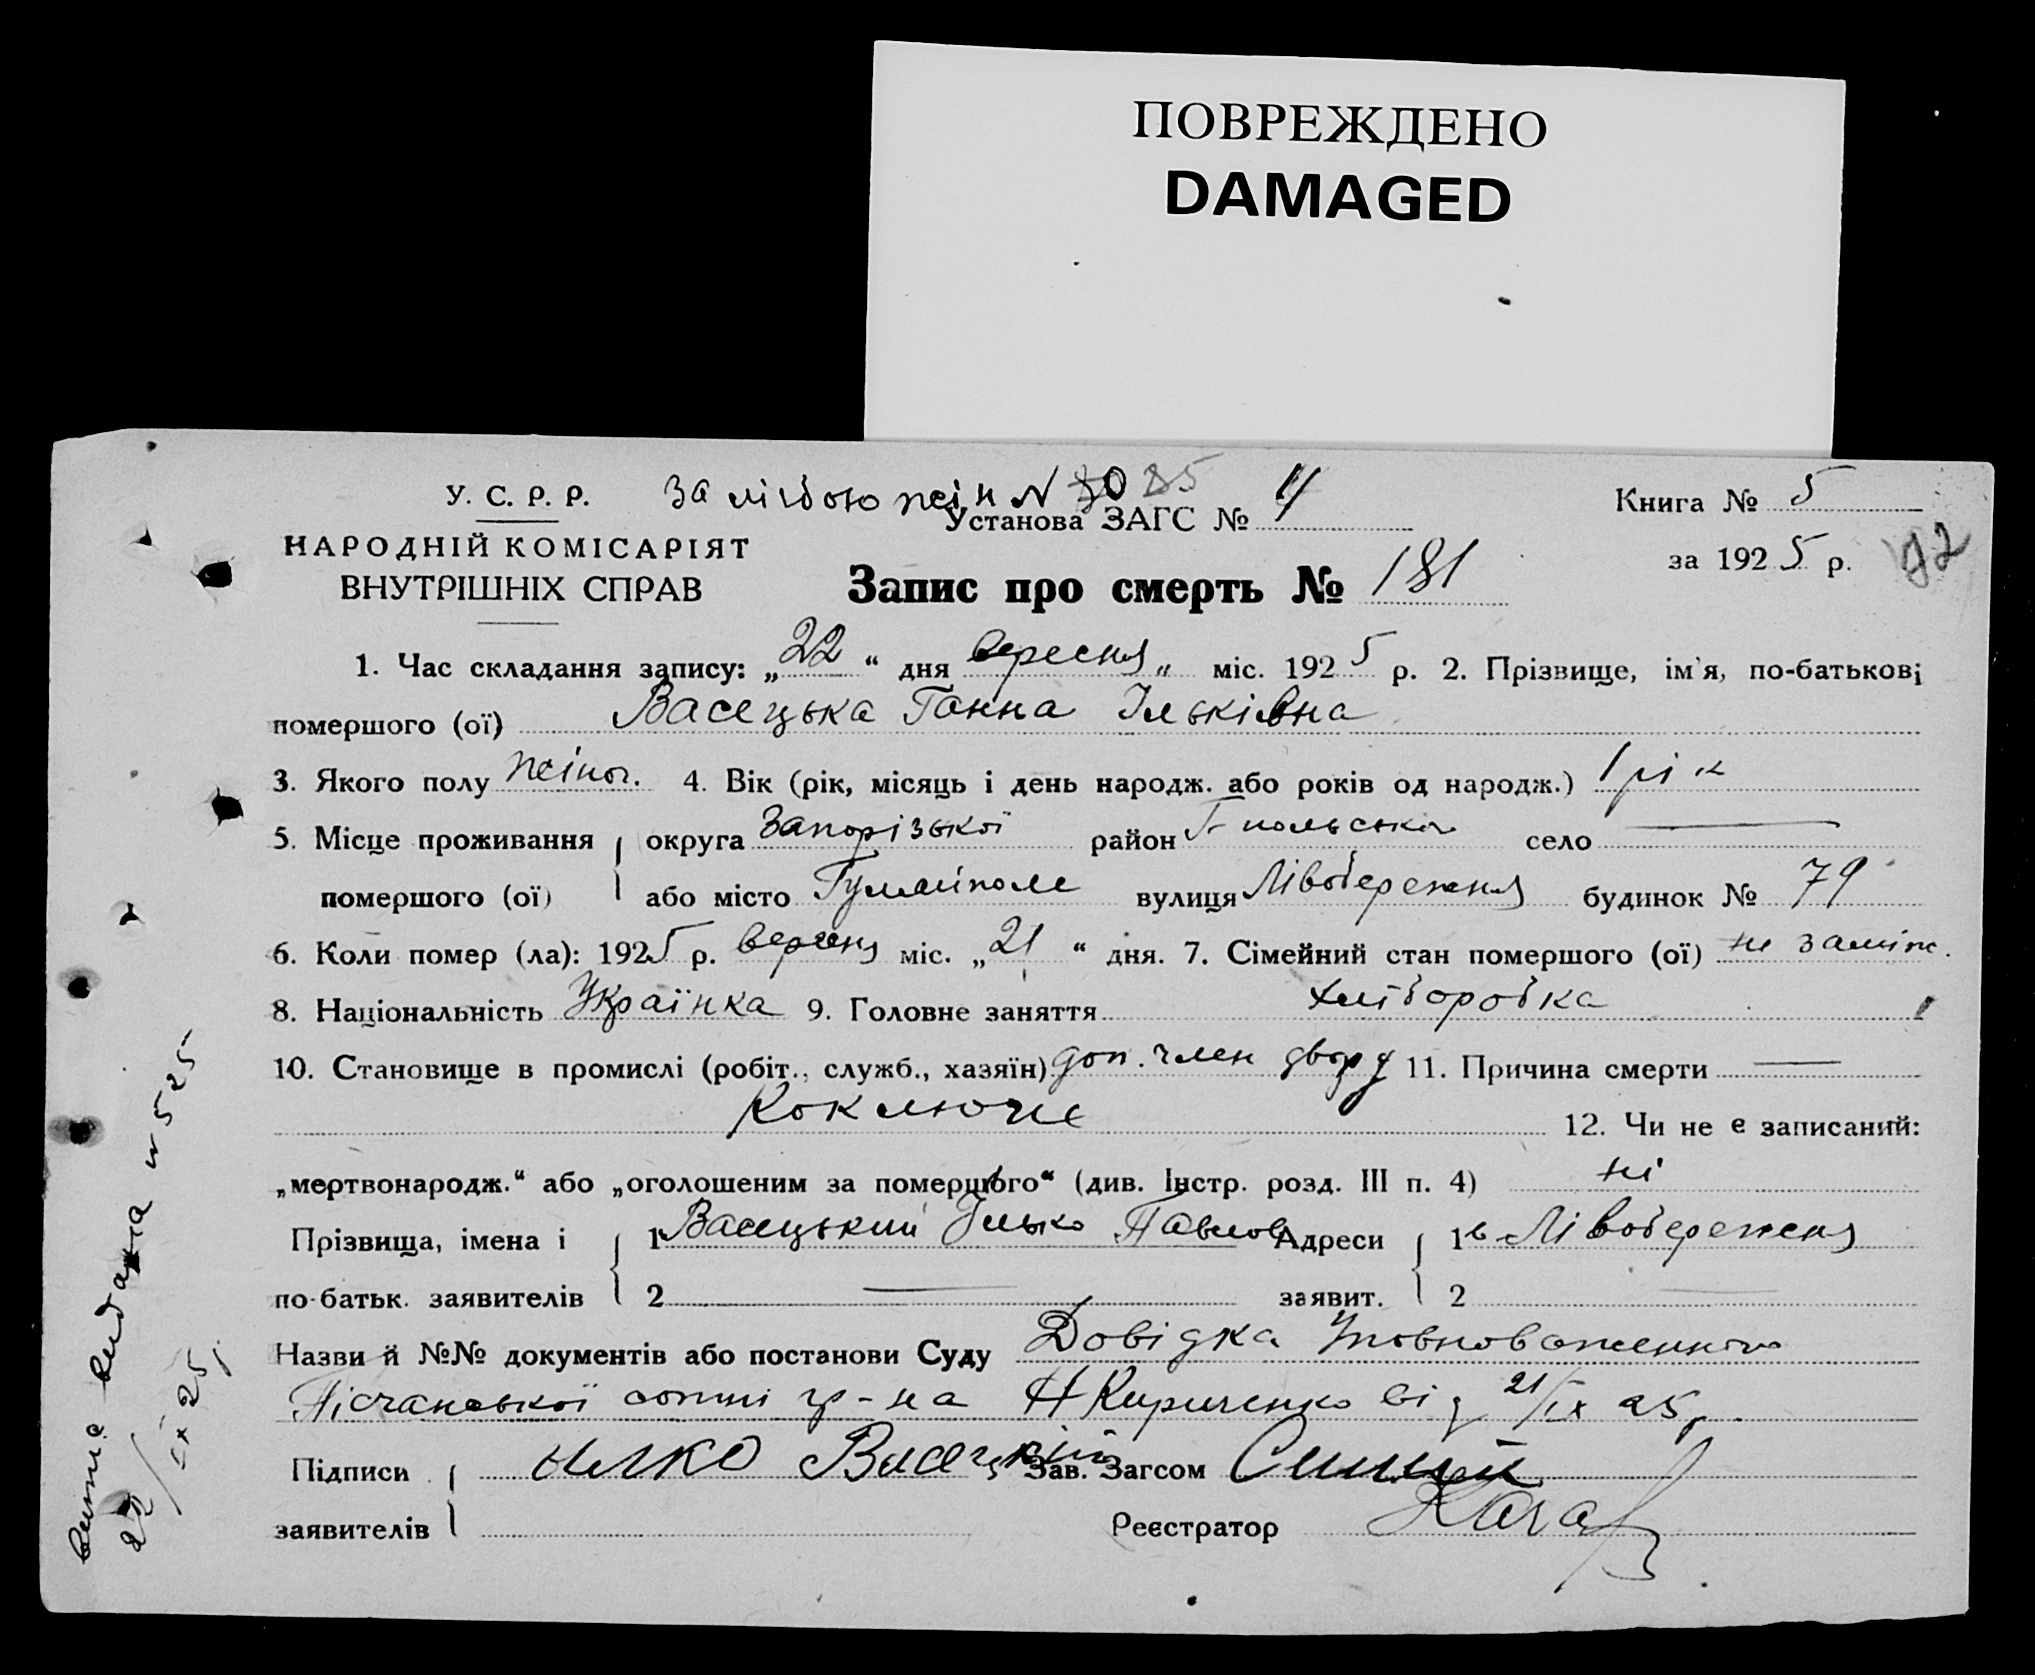 ПОВРЕЖДЕНО
DAMAGED
У. С. Р. Р.
НАРОДНІЙ КОМІСАРІЯТ
ВНУТРІШНІХ СПРАВ
За лічбою жін N 80 85
Установа ЗАГС № 4
Книга № 5
за 1925 р.
Запис про смерть № 181
1. Час складання запису: „22“ дня вересня „ міс. 1925 р. 2. Прізвище, ім'я, по-батькові
помершого (ої) Васецька Ганна Ільківна
3. Якого полу жіноч. 4. Вік (рік, місяць і день народж. або років од народж.) 1 рік
5. Місце проживання округа Запорізької район Г-польського село —
помершого (ої) або місто Гуляйполе вулиця Лівобережня будинок № 79
6. Коли помер (ла): 1925 р. вересня міс. „21“ дня. 7. Сімейний стан помершого (ої) не заміж.
8. Національність Українка 9. Головне заняття хліборобка
10. Становище в промислі (робіт., служб., хазяїн) доп. член двору 11. Причина смерти —
Коклюше
12. Чи не є записаний:
„мертвонародж.“ або „оголошеним за помершого“ (див. Інстр. розд. III п. 4) ні
Прізвища, імена і 1 Васецький Ілько Павлов Адреси 1 Лівобережня
по-батьк. заявителів 2 — заявит. 2 —
Назви й №№ документів або постанови Суду Довідка Уповноваженного
Пісчанської сотні гр-на Н Кириченко від 21/IX 25 р.
Підписи илко Васецкий Зав. Загсом
заявителів Реєстратор
видана N 525
22/IX 25 р.